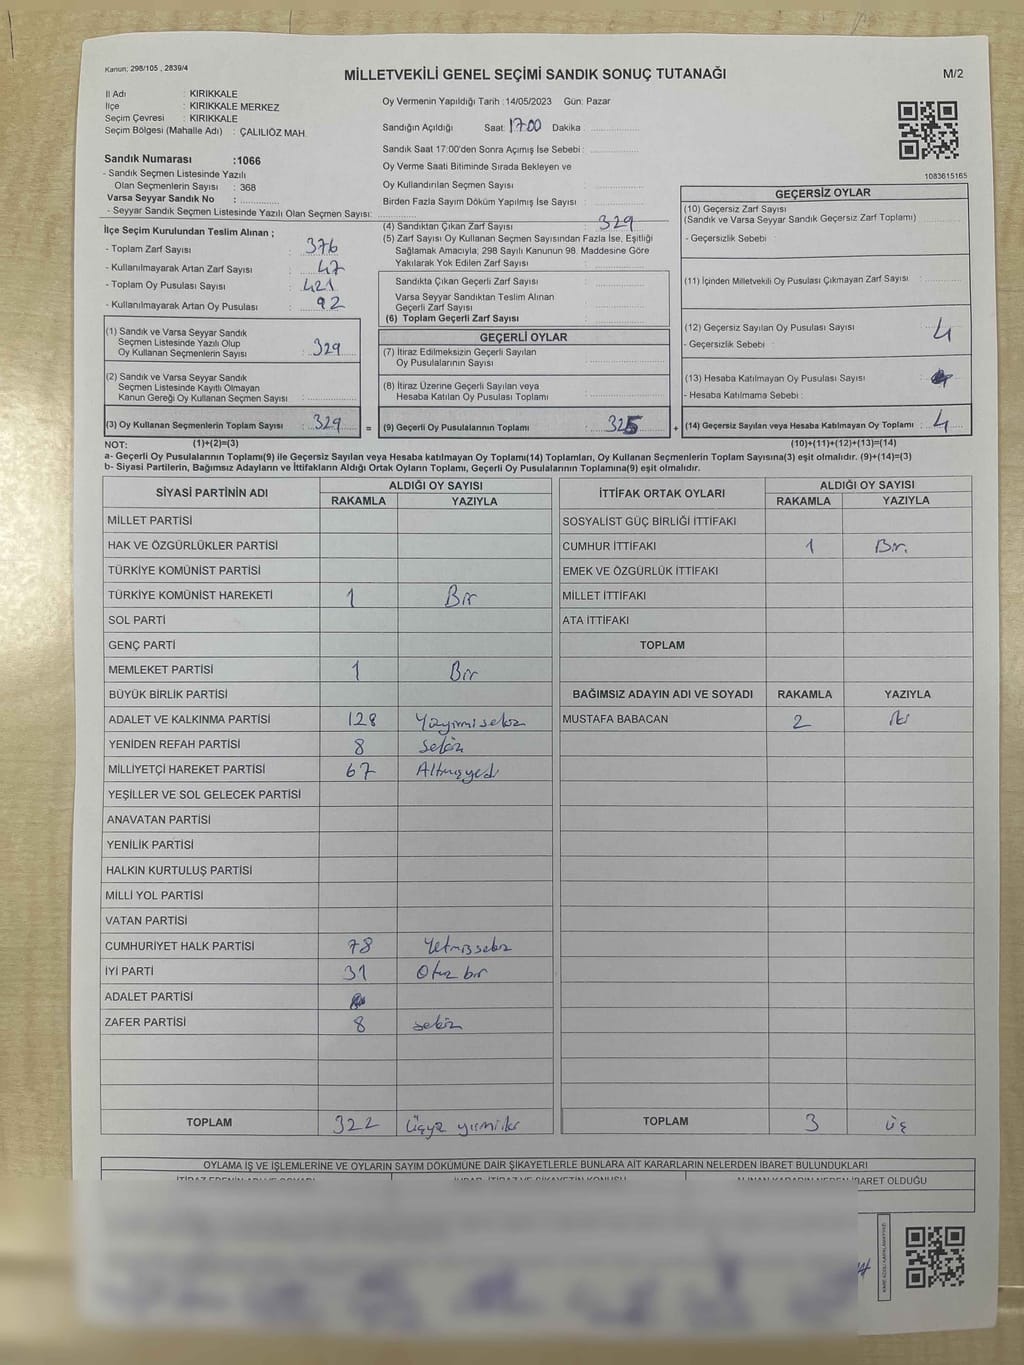 Kanun: 298/105 , 2839/4
MİLLETVEKİLİ GENEL SEÇİMİ SANDIK SONUÇ TUTANAĞI
M/2
İl Adı : KIRIKKALE
İlçe : KIRIKKALE MERKEZ
Seçim Çevresi : KIRIKKALE
Seçim Bölgesi (Mahalle Adı) : ÇALILIÖZ MAH.
Oy Vermenin Yapıldığı Tarih :14/05/2023 Gün: Pazar
Sandığın Açıldığı Saat: 17:00 Dakika :
Sandık Saat 17:00'den Sonra Açımış İse Sebebi :
Oy Verme Saati Bitiminde Sırada Bekleyen ve
Oy Kullandırılan Seçmen Sayısı :
Birden Fazla Sayım Döküm Yapılmış İse Sayısı :
1083615165
Sandık Numarası :1066
- Sandık Seçmen Listesinde Yazılı
Olan Seçmenlerin Sayısı : 368
Varsa Seyyar Sandık No :
- Seyyar Sandık Seçmen Listesinde Yazılı Olan Seçmen Sayısı:
İlçe Seçim Kurulundan Teslim Alınan ;
- Toplam Zarf Sayısı : 376
- Kullanılmayarak Artan Zarf Sayısı : 47
- Toplam Oy Pusulası Sayısı : 421
- Kullanılmayarak Artan Oy Pusulası : 92
(1) Sandık ve Varsa Seyyar Sandık
Seçmen Listesinde Yazılı Olup
Oy Kullanan Seçmenlerin Sayısı : 329
(2) Sandık ve Varsa Seyyar Sandık
Seçmen Listesinde Kayıtlı Olmayan
Kanun Gereği Oy Kullanan Seçmen Sayısı :
(3) Oy Kullanan Seçmenlerin Toplam Sayısı : 329 =
(4) Sandıktan Çıkan Zarf Sayısı : 329
(5) Zarf Sayısı Oy Kullanan Seçmen Sayısından Fazla İse, Eşitliği
Sağlamak Amacıyla, 298 Sayılı Kanunun 98. Maddesine Göre
Yakılarak Yok Edilen Zarf Sayısı :
Sandıkta Çıkan Geçerli Zarf Sayısı :
Varsa Seyyar Sandıktan Teslim Alınan
Geçerli Zarf Sayısı :
(6) Toplam Geçerli Zarf Sayısı :
GEÇERLİ OYLAR
(7) İtiraz Edilmeksizin Geçerli Sayılan
Oy Pusulalarının Sayısı :
(8) İtiraz Üzerine Geçerli Sayılan veya
Hesaba Katılan Oy Pusulası Toplamı :
(9) Geçerli Oy Pusulalarının Toplamı : 325 +
GEÇERSİZ OYLAR
(10) Geçersiz Zarf Sayısı
(Sandık ve Varsa Seyyar Sandık Geçersiz Zarf Toplamı) :
- Geçersizlik Sebebi :
(11) İçinden Milletvekili Oy Pusulası Çıkmayan Zarf Sayısı :
(12) Geçersiz Sayılan Oy Pusulası Sayısı : 4
- Geçersizlik Sebebi :
(13) Hesaba Katılmayan Oy Pusulası Sayısı :
- Hesaba Katılmama Sebebi :
(14) Geçersiz Sayılan veya Hesaba Katılmayan Oy Toplamı : 4
NOT: (1)+(2)=(3) (10)+(11)+(12)+(13)=(14)
a- Geçerli Oy Pusulalarının Toplamı(9) ile Geçersiz Sayılan veya Hesaba katılmayan Oy Toplamı(14) Toplamları, Oy Kullanan Seçmenlerin Toplam Sayısına(3) eşit olmalıdır. (9)+(14)=(3)
b- Siyasi Partilerin, Bağımsız Adayların ve İttifakların Aldığı Ortak Oyların Toplamı, Geçerli Oy Pusulalarının Toplamına(9) eşit olmalıdır.
SİYASİ PARTİNİN ADI ALDIĞI OY SAYISI
RAKAMLA YAZIYLA
MİLLET PARTİSİ
HAK VE ÖZGÜRLÜKLER PARTİSİ
TÜRKİYE KOMÜNİST PARTİSİ
TÜRKİYE KOMÜNİST HAREKETİ 1 Bir
SOL PARTİ
GENÇ PARTİ
MEMLEKET PARTİSİ 1 Bir
BÜYÜK BİRLİK PARTİSİ
ADALET VE KALKINMA PARTİSİ 128 Yüzyirmisekiz
YENİDEN REFAH PARTİSİ 8 sekiz
MİLLİYETÇİ HAREKET PARTİSİ 67 Altmışyedi
YEŞİLLER VE SOL GELECEK PARTİSİ
ANAVATAN PARTİSİ
YENİLİK PARTİSİ
HALKIN KURTULUŞ PARTİSİ
MİLLİ YOL PARTİSİ
VATAN PARTİSİ
CUMHURİYET HALK PARTİSİ 78 Yetmişsekiz
İYİ PARTİ 31 Otuz bir
ADALET PARTİSİ
ZAFER PARTİSİ 8 sekiz
TOPLAM 322 Üçyüz yirmiiki
İTTİFAK ORTAK OYLARI ALDIĞI OY SAYISI
RAKAMLA YAZIYLA
SOSYALİST GÜÇ BİRLİĞİ İTTİFAKI
CUMHUR İTTİFAKI 1 Bir.
EMEK VE ÖZGÜRLÜK İTTİFAKI
MİLLET İTTİFAKI
ATA İTTİFAKI
TOPLAM
BAĞIMSIZ ADAYIN ADI VE SOYADI RAKAMLA YAZIYLA
MUSTAFA BABACAN 2 iki
TOPLAM 3 üç
OYLAMA İŞ VE İŞLEMLERİNE VE OYLARIN SAYIM DÖKÜMÜNE DAİR ŞİKAYETLERLE BUNLARA AİT KARARLARIN NELERDEN İBARET BULUNDUKLARI
İTİRAZ EDENİN ADI VE SOYADI İHBAR, İTİRAZ VE ŞİKAYETİN KONUSU ALINAN KARARIN NEDEN İBARET OLDUĞU